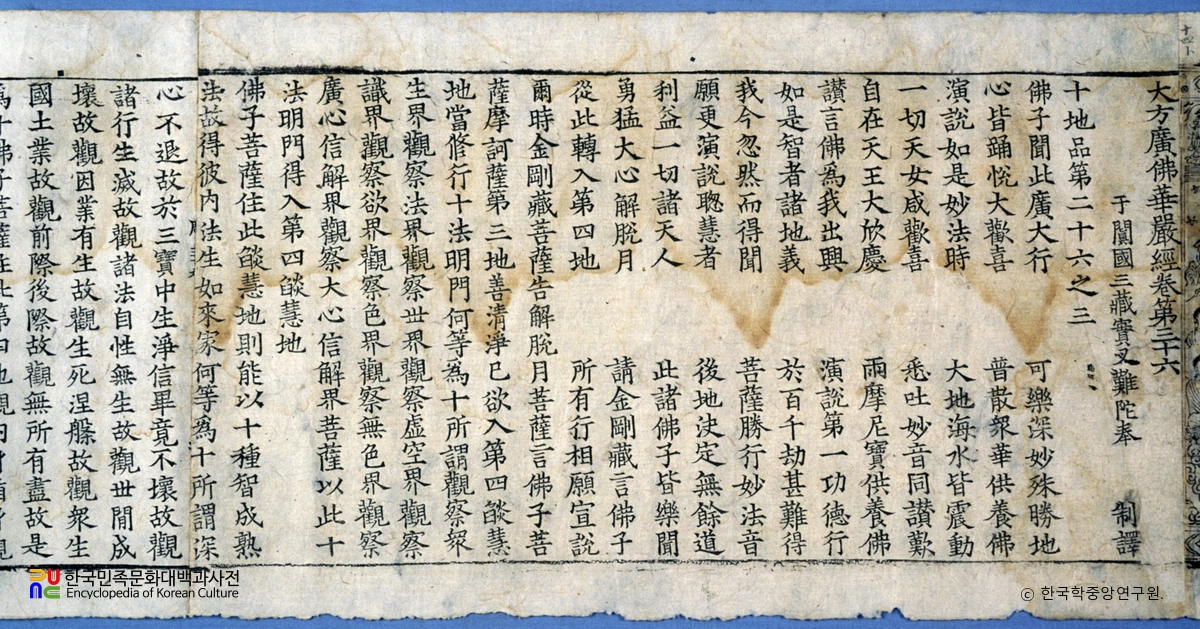 大方廣佛華嚴經卷第三十六
于闐國三藏實叉難陀奉 制譯
十地品第二十六之三
佛子聞此廣大行 可樂深妙殊勝地
心皆踊悅大歡喜 普散衆華供養佛
演說如是妙法時 大地海水皆震動
一切天女咸歡喜 悉吐妙音同讚歎
自在天王大欣慶 雨摩尼寶供養佛
讚言佛為我出興 演說第一功德行
如是智者諸地義 於百千劫甚難得
我今忽然而得聞 菩薩勝行妙法音
願更演說聰慧者 後地決定無餘道
利益一切諸天人 此諸佛子皆樂聞
勇猛大心解脫月 請金剛藏言佛子
從此轉入第四地 所有行相願宣說
爾時金剛藏菩薩告解脫月菩薩言佛子菩
薩摩訶薩第三地善清淨已欲入第四燄慧
地當修行十法明門何等為十所謂觀察衆
生界觀察法界觀察世界觀察虛空界觀察
識界觀察欲界觀察色界觀察無色界觀察
廣心信解界觀察大心信解界菩薩以此十
法明門得入第四燄慧地
佛子菩薩住此燄慧地則能以十種智成熟
法故得彼內法生如來家何等為十所謂深
心不退故於三寶中生淨信畢竟不壞故觀
諸行生滅故觀諸法自性無生故觀世間成
壞故觀因業有生故觀生死涅槃故觀衆生
國土業故觀前際後際故觀無所有盡故是
為十佛子菩薩住此第四地觀內身循身觀
한국민족문화대백과사전
Encyclopedia of Korean Culture
ⓒ 한국학중앙연구원.